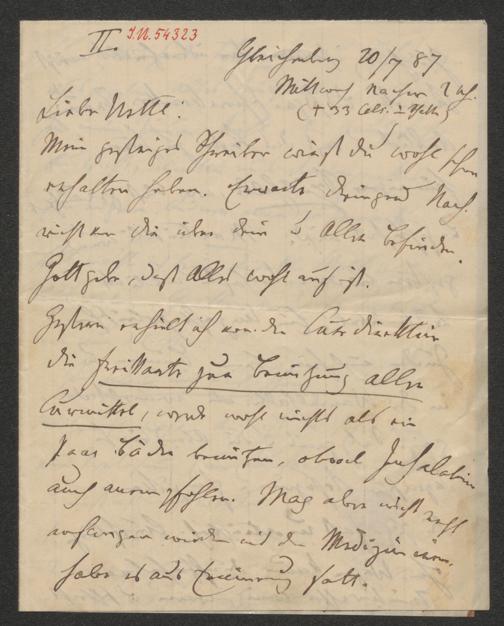 II. I.N. 54323
Gleichenberg 20/7 87
Mittwoch Nachm 2 Uh.
(+ 33 Cels. i. Schatt)
Liebe Nettl!
Mein gestriges Schreiben wirst du wohl schon
erhalten haben. Erwarte dringend Nach-
richten von dir über dein & Aller Befinden.
Gott gebe, daß Alles wohl auf ist.
Gestern erhielt ich von der Curdirektion
die Freikarte zur Benützung aller
Curmittel, werde wohl nichts als ein
Paar Bäder benützen, obwol Inhalation
auch anempfohlen. Mag aber nicht recht
anfangen wieder mit dem Mediziniren,
habe es aus Erinnerung satt.